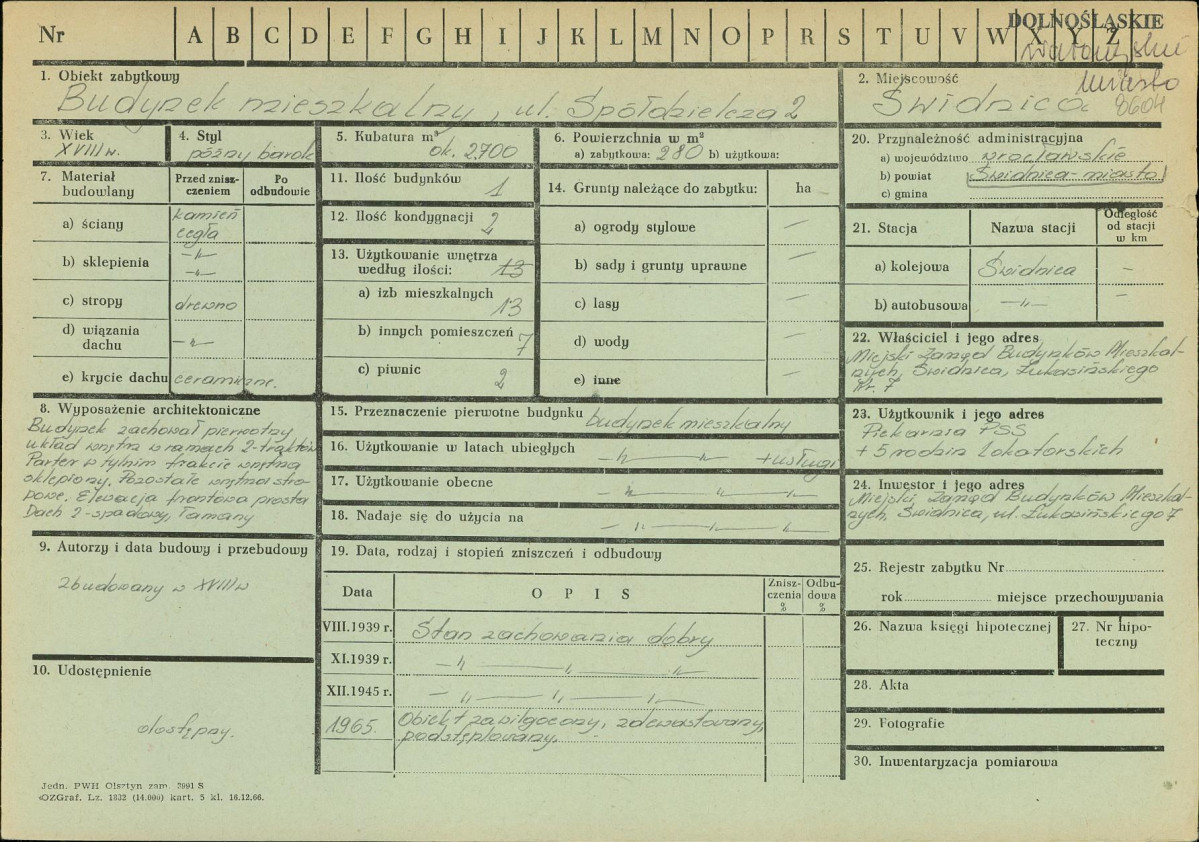 Nr A B C D E F G H I J K L M N O P R S T U V W X Y Z
DOLNOŚLĄSKIE
miasto
8604
1. Obiekt zabytkowy
Budynek mieszkalny, ul. Spółdzielcza 2
2. Miejscowość
Świdnica
3. Wiek
XVIII w.
4. Styl
późny barok
5. Kubatura m³
ok. 2.700
6. Powierzchnia w m²
a) zabytkowa: 280 b) użytkowa:
7. Materiał budowlany
Przed zniszczeniem
Po odbudowie
a) ściany
kamień
cegła
b) sklepienia
-"-
-"-
c) stropy
drewno
d) wiązania dachu
-"-
e) krycie dachu
ceramiczne.
8. Wyposażenie architektoniczne
Budynek zachował pierwotny
układ wnętrz w ramach 2-traktów
Parter w tylnim trakcie wnętrza
sklepiony. Pozostałe wnętrza stro-
powe. Elewacja frontowa prosta
Dach 2-spadowy, łamany
9. Autorzy i data budowy i przebudowy
zbudowany w XVIII w
10. Udostępnienie
dostępny.
11. Ilość budynków
1
12. Ilość kondygnacji
2
13. Użytkowanie wnętrza
według ilości: 13
a) izb mieszkalnych
13
b) innych pomieszczeń
7
c) piwnic
2
14. Grunty należące do zabytku: ha
a) ogrody stylowe —
b) sady i grunty uprawne —
c) lasy —
d) wody —
e) inne —
15. Przeznaczenie pierwotne budynku budynek mieszkalny
16. Użytkowanie w latach ubiegłych -"- + usługi
17. Użytkowanie obecne -"-
18. Nadaje się do użycia na -"-
19. Data, rodzaj i stopień zniszczeń i odbudowy
Data
O P I S
Zniszczenia %
Odbudowa %
VIII.1939 r. Stan zachowania dobry
XI.1939 r. -"-
XII.1945 r. -"-
1965. Obiekt zawilgocony, zdewastowany,
podstęplowany.
20. Przynależność administracyjna
a) województwo wrocławskie
b) powiat Świdnica-miasto
c) gmina
21. Stacja
Nazwa stacji
Odległość od stacji w km
a) kolejowa Świdnica —
b) autobusowa -"- —
22. Właściciel i jego adres
Miejski Zarząd Budynków Mieszkal-
nych, Świdnica, Łukasińskiego
Nr. 7
23. Użytkownik i jego adres
Piekarnia PSS
+ 5 rodzin lokatorskich
24. Inwestor i jego adres
Miejski Zarząd Budynków Mieszkal-
nych, Świdnica, ul. Łukasińskiego 7
25. Rejestr zabytku Nr
rok miejsce przechowywania
26. Nazwa księgi hipotecznej
27. Nr hipoteczny
28. Akta
29. Fotografie
30. Inwentaryzacja pomiarowa
Jedn. PWH Olsztyn zam. 3991 S
OZGraf. Lz. 1832 (14.000) kart. 5 kl. 16.12.66.